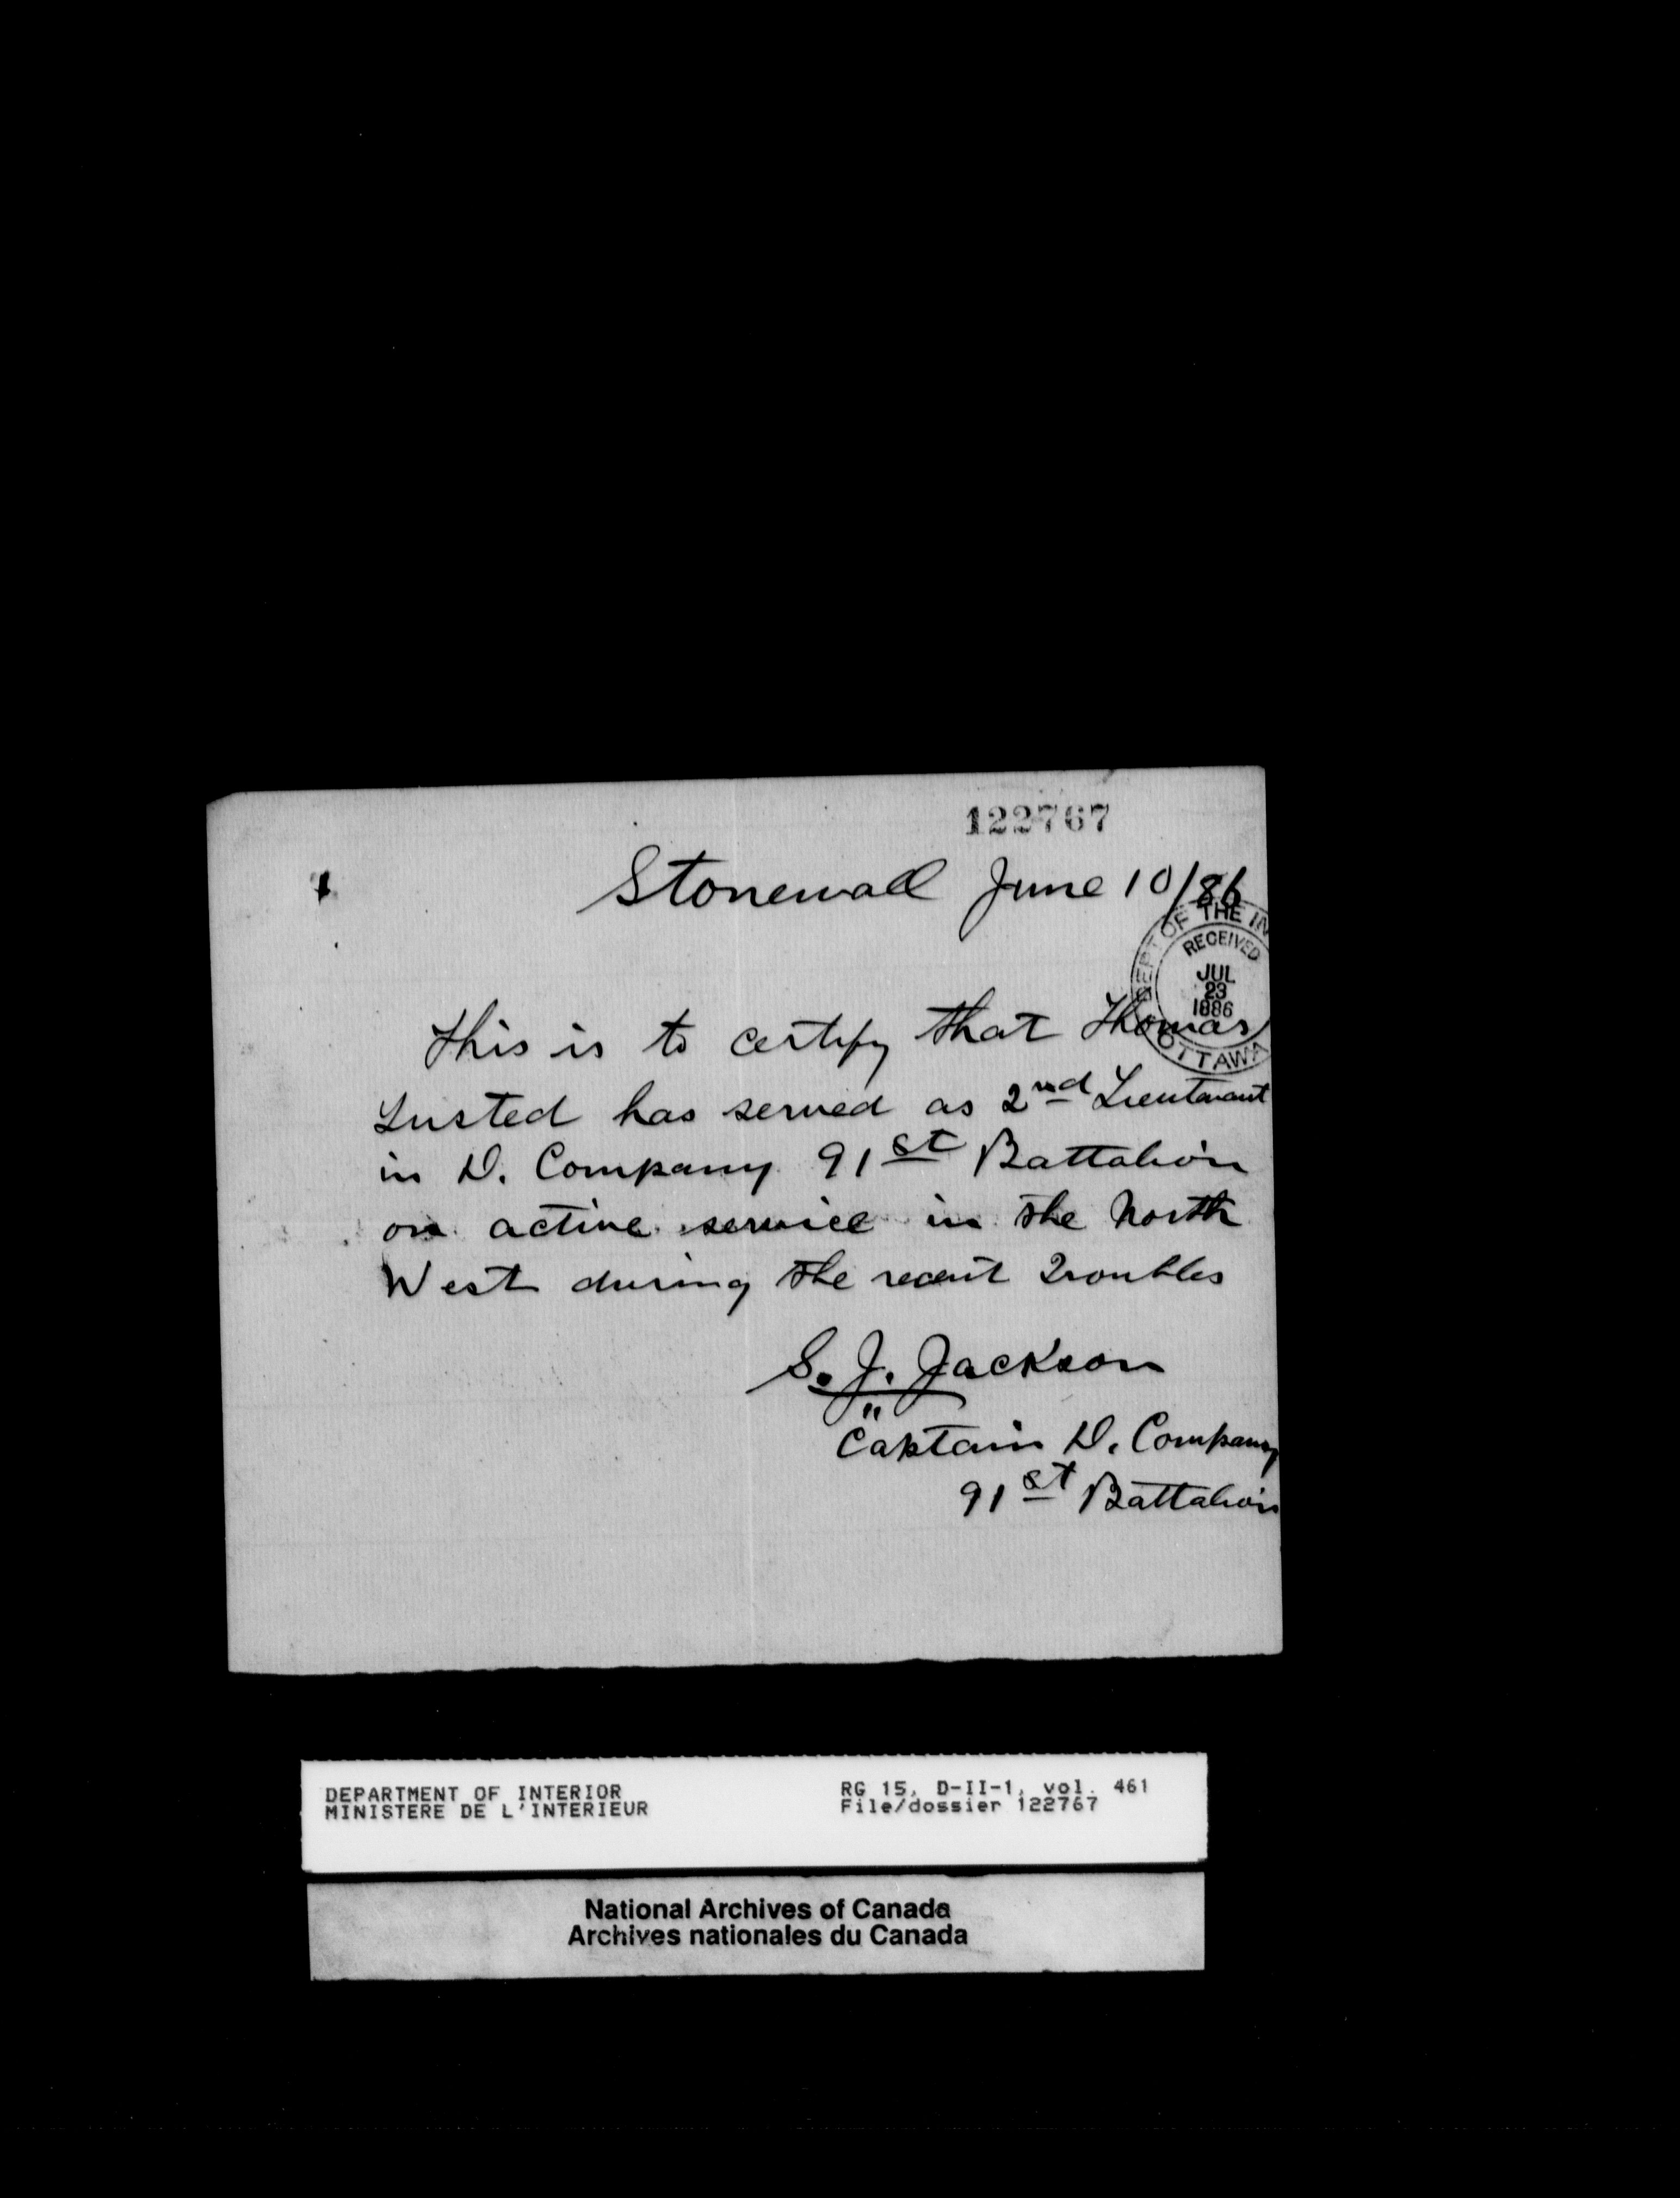 122767
Stonewall June 10/86
DEPT OF THE IN
RECEIVED
JUL
23
1886
OTTAWA
This is to certify that Thomas
Lusted has served as 2nd Lieutenant
in D. Company 91st Battalion
on active service in the North
West during the recent Troubles
S. J. Jackson
"
Captain D. Company
91st Battalion
DEPARTMENT OF INTERIOR
MINISTERE DE L'INTERIEUR
RG 15, D-II-1, vol. 461
File/dossier 122767
National Archives of Canada
Archives nationales du Canada